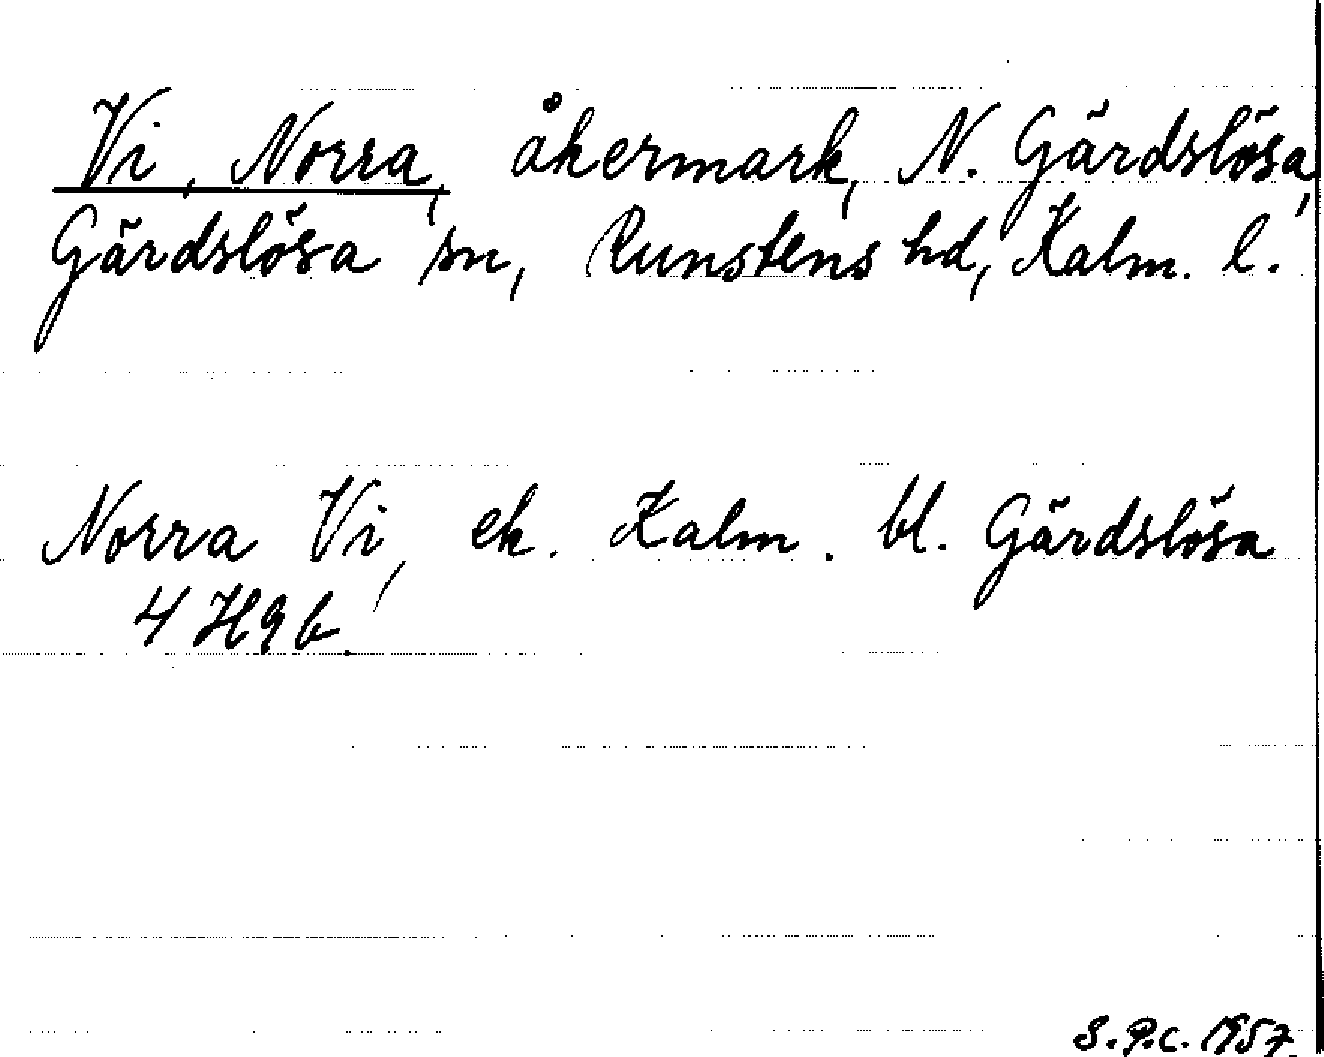 Vi, Norra, åkermark, N. Gärdslösa,
Gärdslösa sn, Runstens hd, Kalm. l.
Norra Vi, ek. Kalm. bl. Gärdslösa
4 H 9 b.
S.P.C. 1957